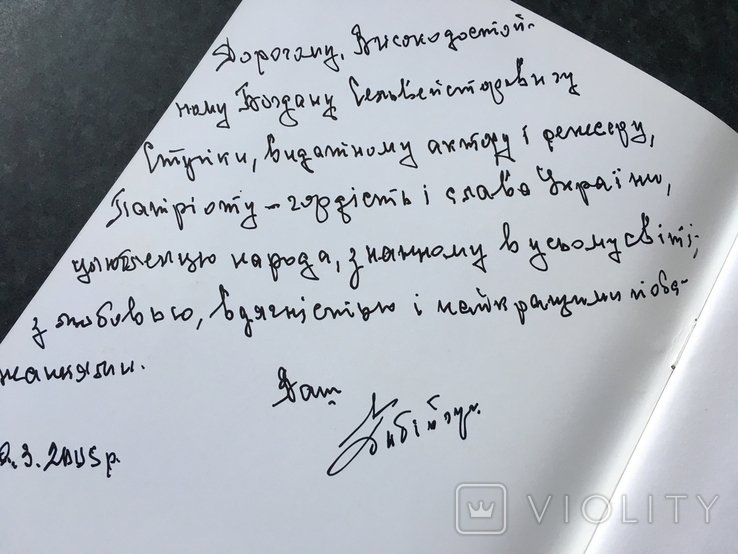 Дорогому, Високодостой-
ному Богдану Сельвестровичу
Ступки, видатному актору і режесеру,
Патріоту – гордість і слава України,
улюбленцю народа, знанному в усьому світі;
з любовью, вдячністью і найкращими поба-
жаннями.
Ваш
.3.2005 р.
VIOLITY